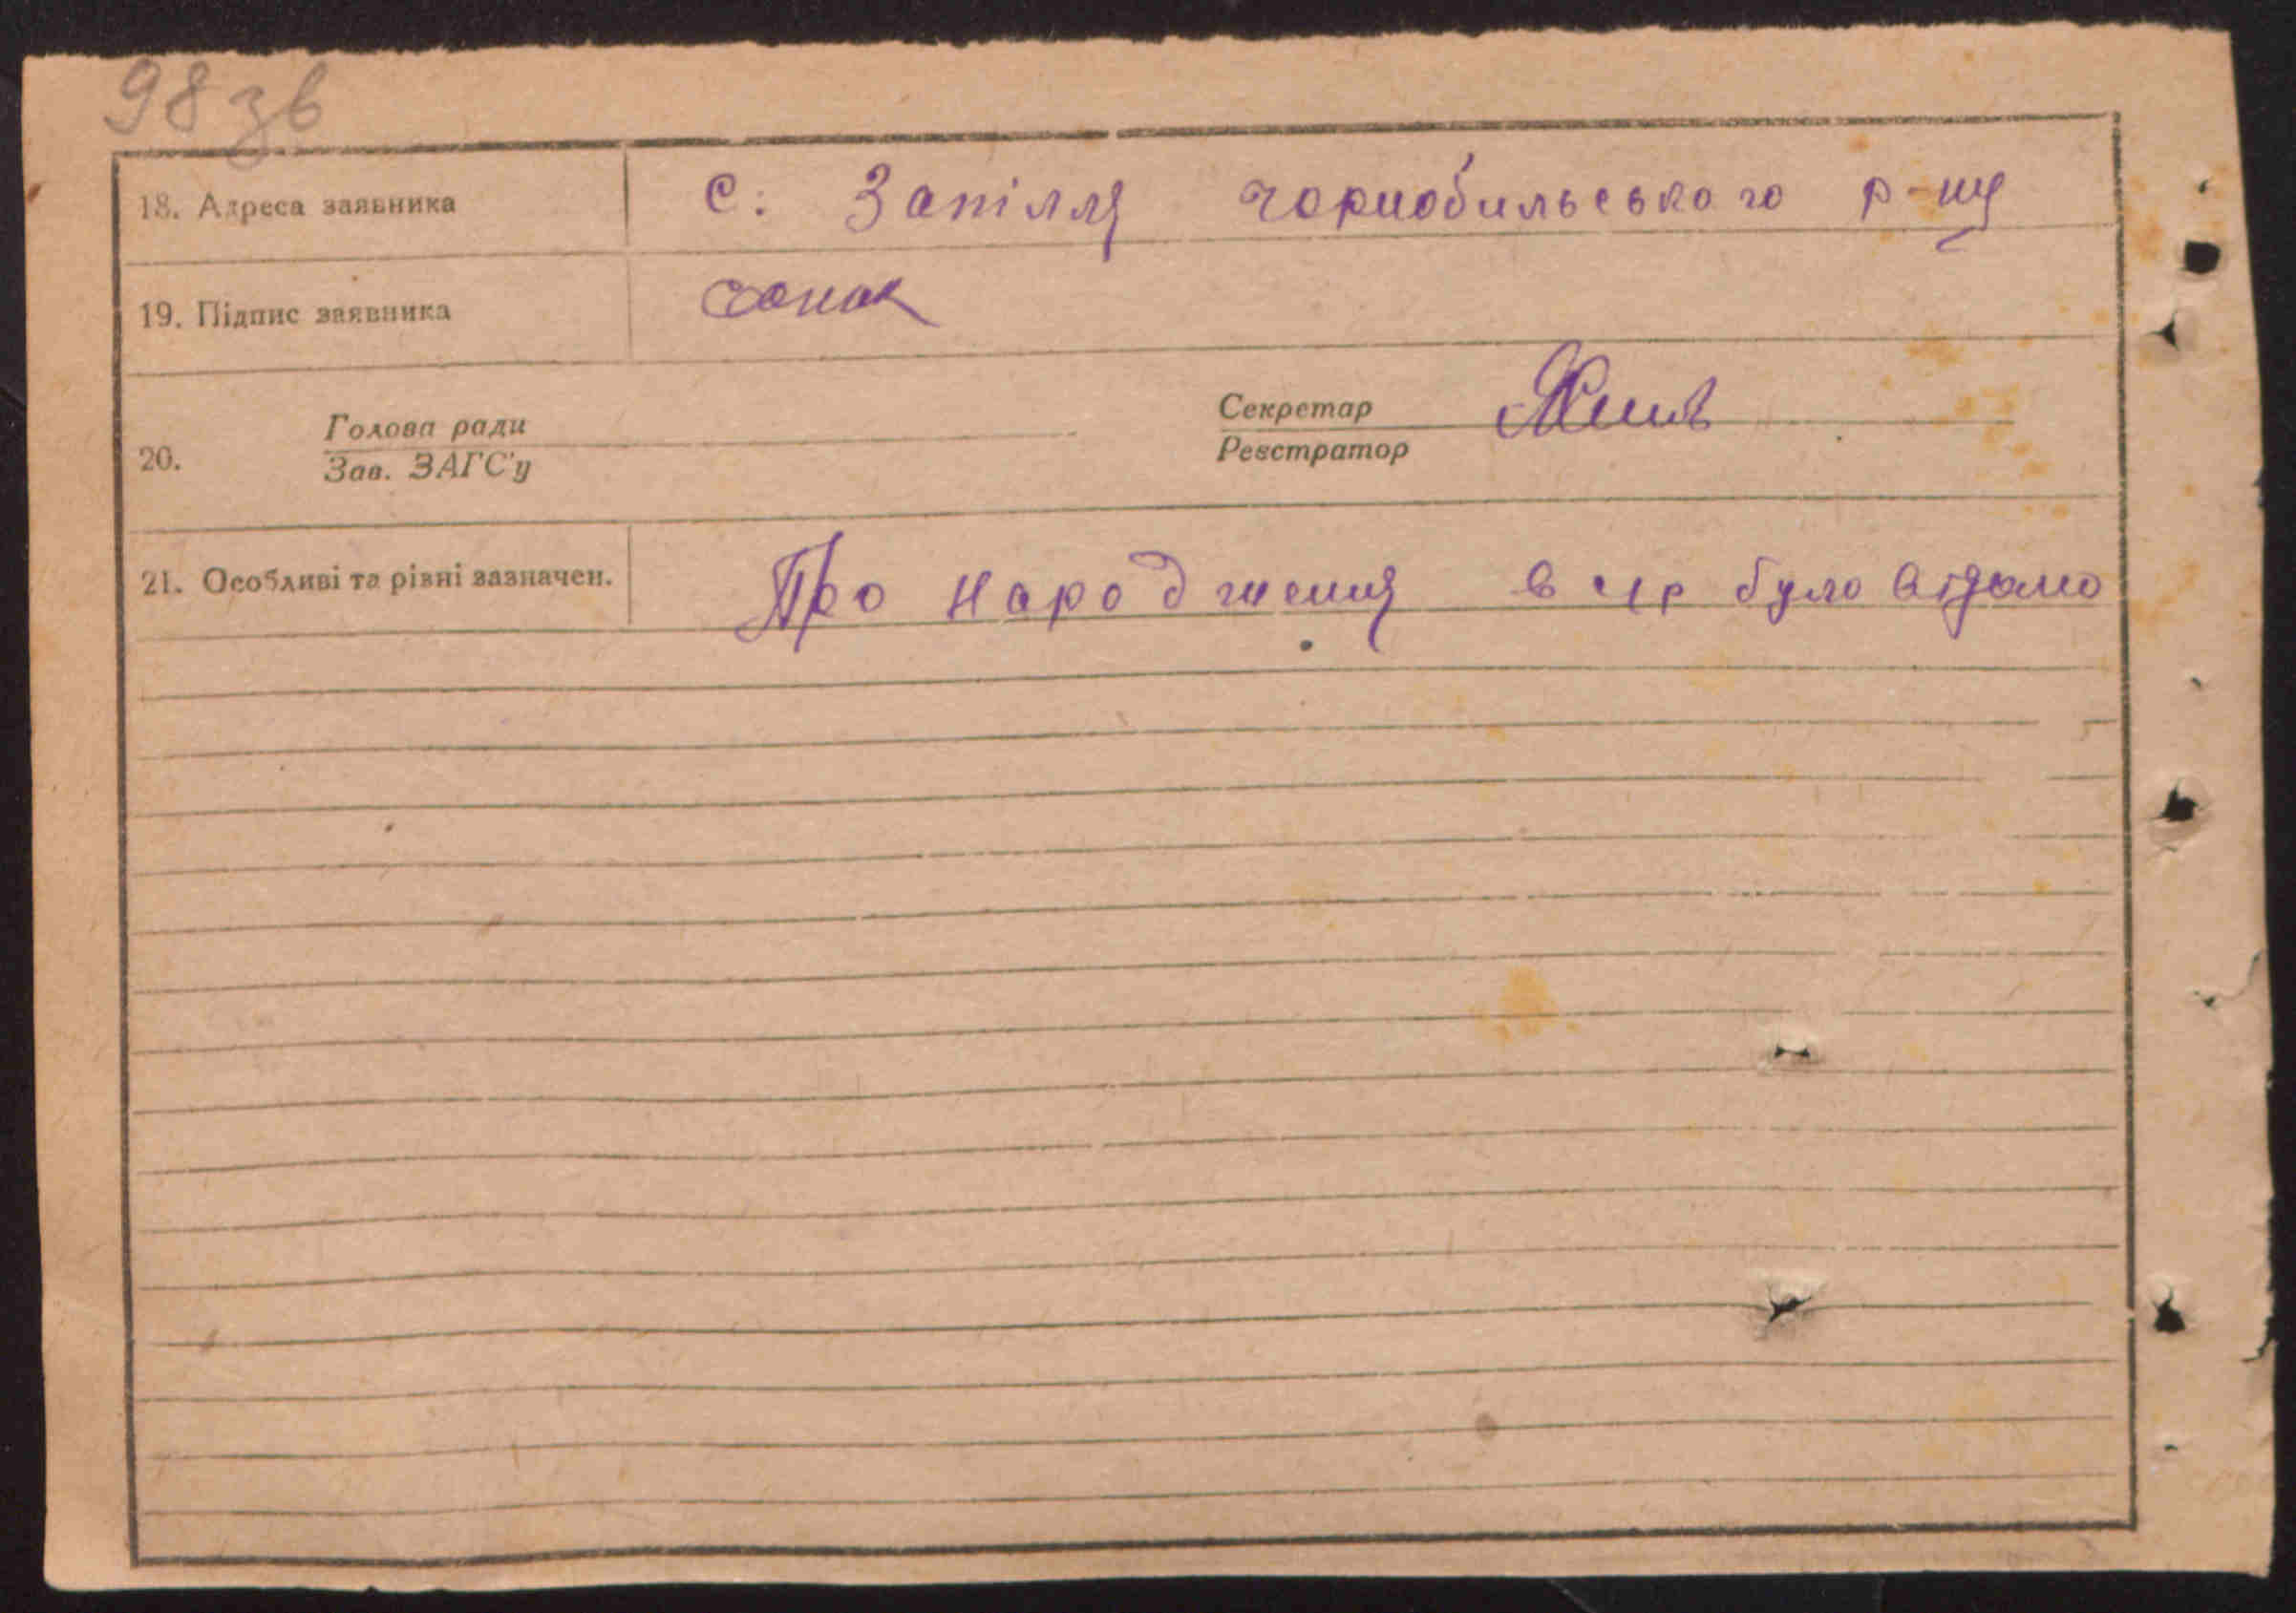 98 зв
18. Адреса заявника с. Запілля чорнобильського р-ну
19. Підпис заявника
20. Голова ради Секретар
Зав. ЗАГС'у Реєстратор
21. Особливі та рівні зазначен. Про народження в с/р було відомо